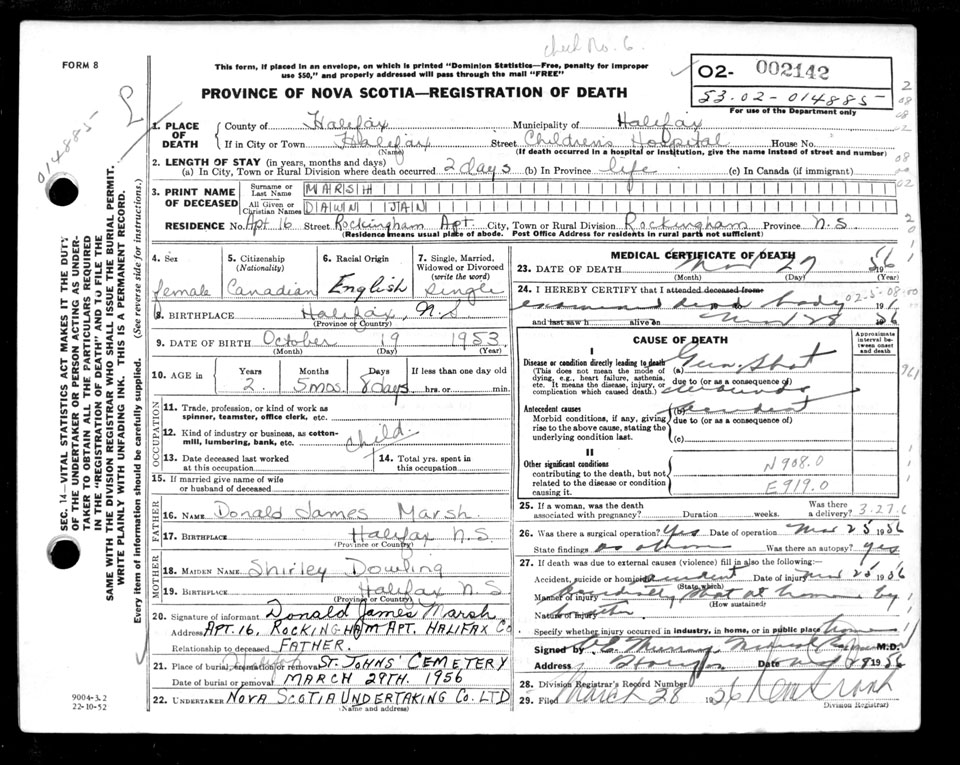 check No. 6.
FORM 8
This form, if placed in an envelope, on which is printed "Dominion Statistics—Free, penalty for improper
use $50," and properly addressed will pass through the mail "FREE"
02- 002142
53.02-014885
For use of the Department only
PROVINCE OF NOVA SCOTIA—REGISTRATION OF DEATH
014885
SEC. 14—VITAL STATISTICS ACT MAKES IT THE DUTY
OF THE UNDERTAKER OR PERSON ACTING AS UNDER-
TAKER TO OBTAIN ALL THE PARTICULARS REQUIRED
IN THE "REGISTRATION OF DEATH" AND TO FILE THE
SAME WITH THE DIVISION REGISTRAR WHO SHALL ISSUE THE BURIAL PERMIT.
WRITE PLAINLY WITH UNFADING INK. THIS IS A PERMANENT RECORD.
Every item of information should be carefully supplied. (See reverse side for instructions.)
1. PLACE OF DEATH
County of Halifax Municipality of Halifax
If in City or Town Halifax Street Children's Hospital House No.
(Name) (If death occurred in a hospital or institution, give the name instead of street and number)
2. LENGTH OF STAY (in years, months and days)
(a) In City, Town or Rural Division where death occurred 2 days (b) In Province life (c) In Canada (if immigrant)
3. PRINT NAME OF DECEASED
Surname or Last Name MARSH
All Given or Christian Names DAWN JAN
RESIDENCE No. Apt 16 Street Rockingham Apt. City, Town or Rural Division Rockingham Province N.S
(Residence means usual place of abode. Post Office Address for residents in rural parts not sufficient)
4. Sex female
5. Citizenship (Nationality) Canadian
6. Racial Origin English
7. Single, Married, Widowed or Divorced (write the word) Single
8. BIRTHPLACE Halifax, N.S
(Province or Country)
9. DATE OF BIRTH October 19 1953.
(Month) (Day) (Year)
10. AGE in Years 2. Months 5 mos. Days 8 days If less than one day old hrs. or min.
OCCUPATION
11. Trade, profession, or kind of work as spinner, teamster, office clerk, etc.
12. Kind of industry or business, as cotton-mill, lumbering, bank, etc. child.
13. Date deceased last worked at this occupation
14. Total yrs. spent in this occupation
15. If married give name of wife or husband of deceased
FATHER
16. NAME Donald James Marsh.
17. BIRTHPLACE Halifax N.S.
(Province or Country)
MOTHER
18. MAIDEN NAME Shirley Dowling
19. BIRTHPLACE Halifax N.S.
(Province or Country)
20. Signature of informant Donald James Marsh
Address APT. 16, ROCKINGHAM APT. HALIFAX CO
Relationship to deceased FATHER.
21. Place of burial, cremation or removal ST. JOHNS' CEMETERY
Date of burial or removal MARCH 29TH. 1956
22. UNDERTAKER NOVA SCOTIA UNDERTAKING CO. LTD
(Name and address)
9004-3.2
22-10-52
MEDICAL CERTIFICATE OF DEATH
23. DATE OF DEATH Mar 27 1956
(Month) (Day) (Year)
24. I HEREBY CERTIFY that I attended deceased from
examined dead body 02-5-08-00
and last saw h alive on Mar 28 1956
CAUSE OF DEATH
Approximate interval between onset and death
I
Disease or condition directly leading to death (a) Gun Shot
(This does not mean the mode of dying, e.g., heart failure, asthenia, etc. It means the disease, injury, or complication which caused death.)
due to (or as a consequence of) wounds
Antecedent causes (b) accident
Morbid conditions, if any, giving rise to the above cause, stating the underlying condition last.
due to (or as a consequence of)
(c)
II
Other significant conditions
contributing to the death, but not related to the disease or condition causing it.
N908.0
E919.0
25. If a woman, was the death associated with pregnancy? Duration weeks. Was there a delivery? 3.27.6
26. Was there a surgical operation? Yes Date of operation Mar 25 1956
State findings as above Was there an autopsy? yes
27. If death was due to external causes (violence) fill in also the following:
Accident, suicide or homicide accident Date of injury Mar 25 1956
(State which)
Manner of injury accidentally shot at home by
(How sustained)
Nature of injury brother
Specify whether injury occurred in industry, in home, or in public place home
Signed by M.D.
Address Halifax Date Mar 28 1956
28. Division Registrar's Record Number
29. Filed March 28 1956
Division Registrar)